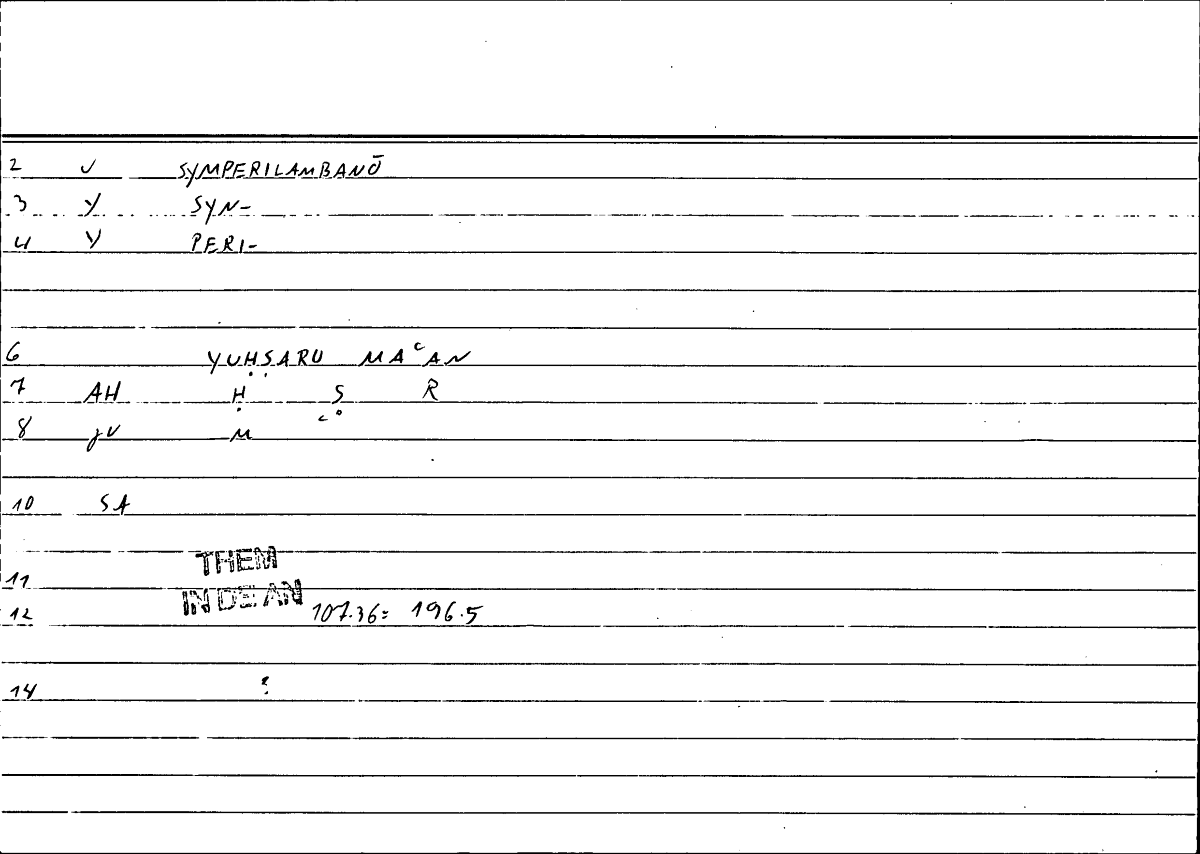 2 V SYMPERILAMBANŌ
3 Y SYN-
4 Y PERI-
6 YUḤṢARU MAʿAN
7 AH Ḥ Ṣ R
8 JV M ʿ °
10 SA
THEM
11
IN DE AN
12 107.36 = 196.5
14 :